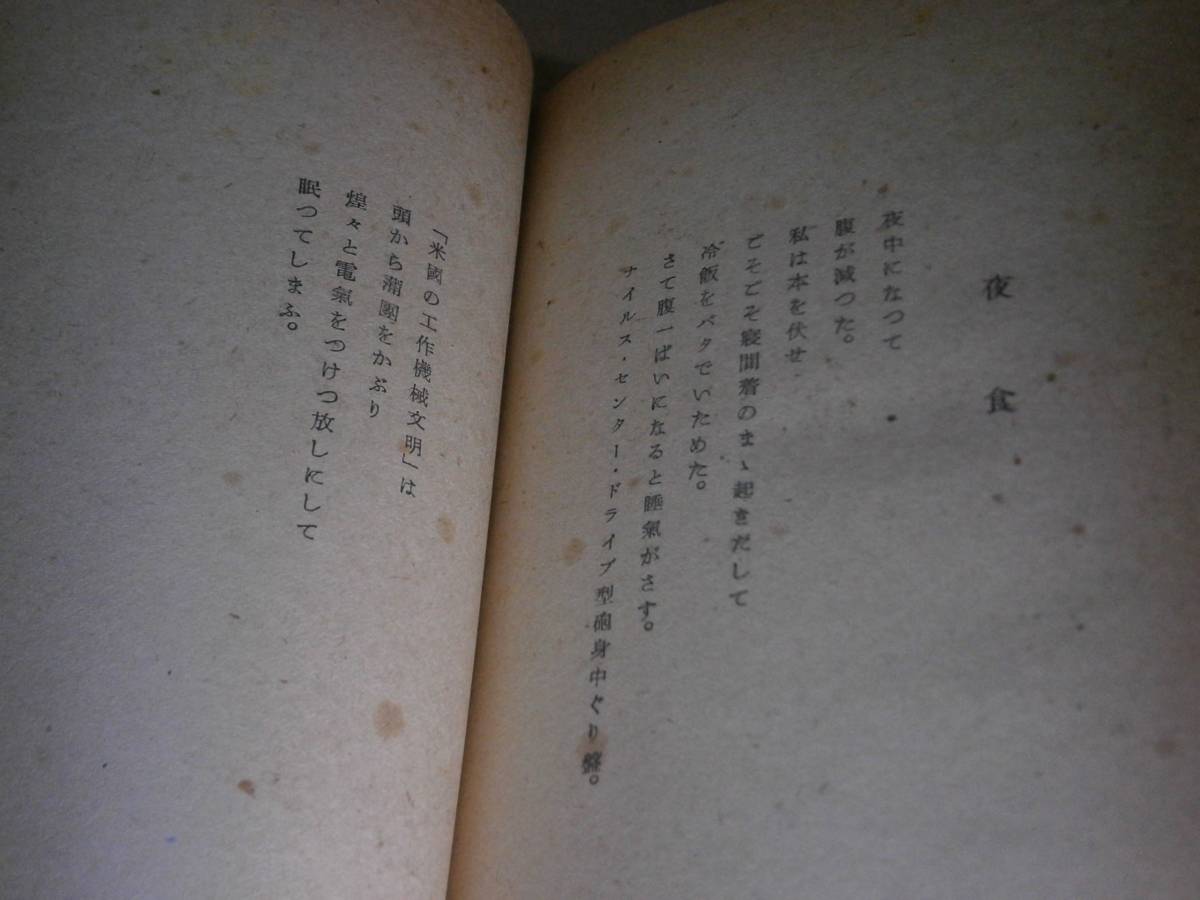 夜食
夜中になつて
腹が減つた。
私は本を伏せ
ごそごそ寝間着のまゝ起きだして
冷飯をバタでいためた。
さて腹一ぱいになると睡氣がさす。
ナイルス・センター・ドライブ型砲身中ぐり盤。
「米國の工作機械文明」は
頭から蒲團をかぶり
煌々と電氣をつけつ放しにして
眠つてしまふ。